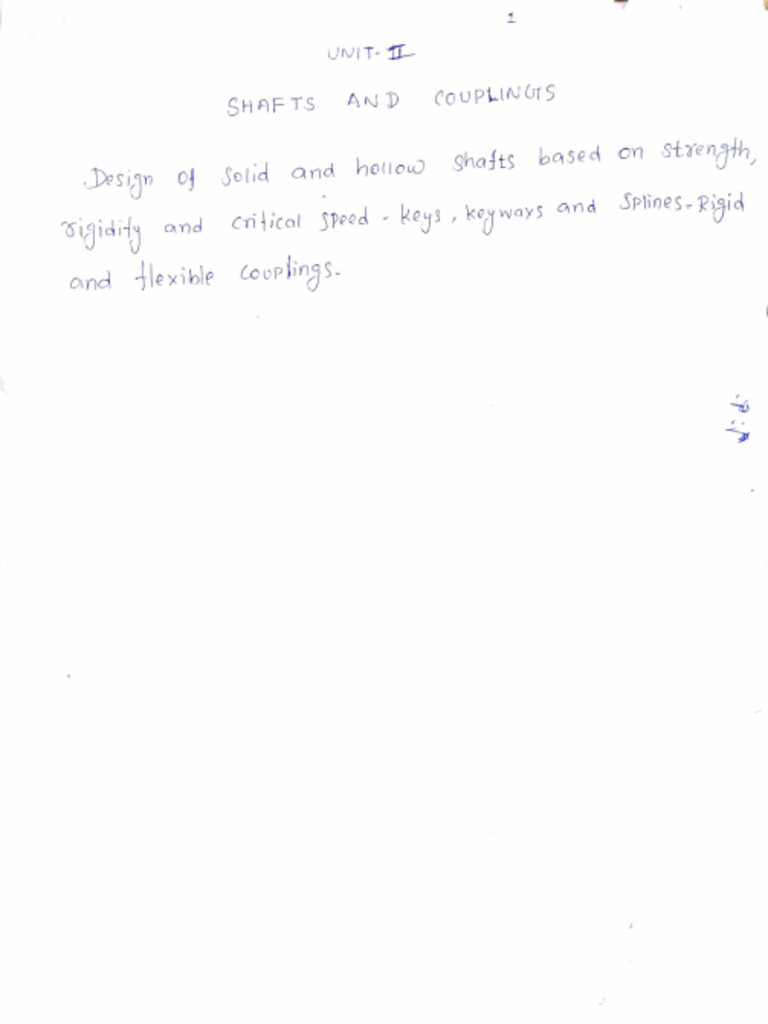 1
UNIT-II
SHAFTS AND COUPLINGS
Design of solid and hollow shafts based on strength,
rigidify and critical speed - keys, keyways and splines - Rigid
and flexible couplings.